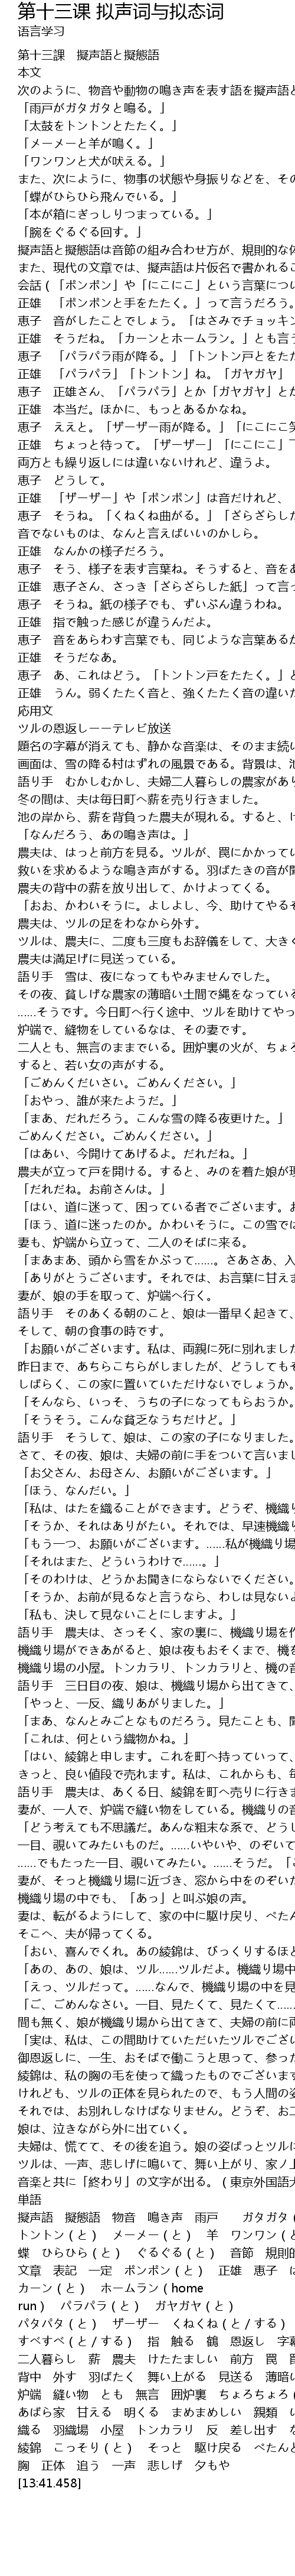 第十三课 拟声词与拟态词
语言学习
第十三課　擬声語と擬態語
本文
次のように、物音や動物の鳴き声を表す語を擬声語と
「雨戸がガタガタと鳴る。」
「太鼓をトントンとたたく。」
「メーメーと羊が鳴く。」
「ワンワンと犬が吠える。」
また、次にように、物事の状態や身振りなどを、その
「蝶がひらひら飛んでいる。」
「本が箱にぎっしりつまっている。」
「腕をぐるぐる回す。」
擬声語と擬態語は音節の組み合わせ方が、規則的な
また、現代の文章では、擬声語は片仮名で書かれるこ
会話 (「ボンボン」や「にこにこ」という言葉につい
正雄　「ボンボンと手をたたく。」って言うだろう。
恵子　音がしたことでしょう。「はさみでチョッキン
正雄　そうだね。「カーンとホームラン。」とも言う
恵子　「パラパラ雨が降る。」「トントン戸とをたた
正雄　「パラパラ」「トントン」ね。「ガヤガヤ」
恵子　正雄さん、「パラパラ」とか「ガヤガヤ」とか
正雄　本当だ。ほかに、もっとあるかなね。
恵子　ええと。「ザーザー雨が降る。」「にこにこ笑
正雄　ちょっと待って。「ザーザー」「にこにこ」
両方とも繰り返しには違いないけれど、違うよ。
恵子　どうして。
正雄　「ザーザー」や「ボンボン」は音だけれど、
恵子　そうね。「くねくね曲がる。」「ざらざらした
音でないものは、なんと言えばいいのかしら。
正雄　なんかの様子だろう。
恵子　そう、様子を表す言葉ね。そうすると、音をあ
正雄　恵子さん、さっき「ざらざらした紙」って言っ
恵子　そうね。紙の様子でも、ずいぶん違うわね。
正雄　指で触った感じが違うんだよ。
恵子　音をあらわす言葉でも、同じような言葉あるか
正雄　そうだなあ。
恵子　あ、これはどう。「トントン戸をたたく。」と
正雄　うん。弱くたたく音と、強くたたく音の違いた
応用文
ツルの恩返しーーテレビ放送
題名の字幕が消えても、静かな音楽は、そのまま続い
画面は、雪の降る村はずれの風景である。背景は、池
語り手　むかしむかし、夫婦二人暮らしの農家があり
冬の間は、夫は毎日町へ薪を売り行きました。
池の岸から、薪を背負った農夫が現れる。すると、け
「なんだろう、あの鳴き声は。」
農夫は、はっと前方を見る。ツルが、罠にかかってい
救いを求めるような鳴き声がする。羽ばたきの音が聞
農夫の背中の薪を放り出して、かけよってくる。
「おお、かわいそうに。よしよし、今、助けてやるぞ
農夫は、ツルの足をわなから外す。
ツルは、農夫に、二度も三度もお辞儀をして、大きく
農夫は満足げに見送っている。
語り手　雪は、夜になってもやみませんでした。
その夜、貧しげな農家の薄暗い土間で縄をなっている
......そうです。今日町へ行く途中、ツルを助けてやっ
炉端で、縫物をしているなは、その妻です。
二人とも、無言のままでいる。囲炉裏の火が、ちょろ
すると、若い女の声がする。
「ごめんくだいさい。ごめんください。」
「おやっ、誰が来たようだ。」
「まあ、だれだろう。こんな雪の降る夜更けた。」
ごめんください。ごめんください。」
「はあい、今開けてあげるよ。だれだね。」
農夫が立って戸を開ける。すると、みのを着た娘が現
「だれだね。お前さんは。」
「はい、道に迷って、困っている者でございます。お
「ほう、道に迷ったのか。かわいそうに。この雪では
妻も、炉端から立って、二人のそばに来る。
「まあまあ、頭から雪をかぶって......。さあさあ、入
「ありがとうございます。それでは、お言葉に甘えま
妻が、娘の手を取って、炉端へ行く。
語り手　そのあくる朝のこと、娘は一番早く起きて、
そして、朝の食事の時です。
「お願いがございます。私は、両親に死に別れました
昨日まで、あちらこちらがしましたが、どうしてもそ
しばらく、この家に置いていただけないでしょうか。
「そんなら、いっそ、うちの子になってもらおうか。
「そうそう。こんな貧乏なうちだけど。」
語り手　そうして、娘は、この家の子になりました。
さて、その夜、娘は、夫婦の前に手をついて言いまし
「お父さん、お母さん、お願いがございます。」
「ほう、なんだい。」
「私は、はたを織ることができます。どうぞ、機織り
「そうか、それはありがたい。それでは、早速機織り
「もう一つ、お願いがございます。......私が機織り場
「それはまた、どういうわけで......。」
「そのわけは、どうかお聞きにならないでください。
「そうか、お前が見るなと言うなら、わしは見ないよ
「私も、決して見ないことにしますよ。」
語り手　農夫は、さっそく、家の裏に、機織り場を作
機織り場ができあがると、娘は夜もおそくまで、機を
機織り場の小屋。トンカラリ、トンカラリと、機の音
語り手　三日目の夜、娘は、機織り場から出てきて、
「やっと、一反、織りあがりました。」
「まあ、なんとみごとなものだろう。見たことも、聞
「これは、何という織物かね。」
「はい、綾錦と申します。これを町へ持っていって、
きっと、良い値段で売れます。私は、これからも、毎
語り手　農夫は、あくる日、綾錦を町へ売りに行きま
妻が、一人で、炉端で縫い物をしている。機織りの音
「どう考えても不思議だ。あんな粗末な系で、どうし
一目、覗いてみたいものだ。......いやいや、のぞいて
......でもたった一目、覗いてみたい。......そうだ。「こ
妻が、そっと機織り場に近づき、窓から中をのぞいた
機織り場の中でも、「あっ」と叫ぶ娘の声。
妻は、転がるようにして、家の中に駆け戻り、べたん
そこへ、夫が帰ってくる。
「おい、喜んでくれ。あの綾錦は、びっくりするほど
「あの、あの、娘は、ツル......ツルだよ。機織り場中
「えっ、ツルだって。......なんで、機織り場の中を見
「ご、ごめんなさい。一目、見たくて、見たくて......
間も無く、娘が機織り場から出てきて、夫婦の前に両
「実は、私は、この間助けていただいたツルでござい
御恩返しに、一生、おそばで働こうと思って、参った
綾錦は、私の胸の毛を使って織ったものでございます
けれども、ツルの正体を見られたので、もう人間の姿
それでは、お別れしなけばなりません。どうぞ、お二
娘は、泣きながら外に出ていく。
夫婦は、慌てて、その後を追う。娘の姿ぱっとツルに
ツルは、一声、悲しげに鳴いて、舞い上がり、家ノ上
音楽と共に「終わり」の文字が出る。 ( 東京外国語大
単語
擬声語　擬態語　物音　鳴き声　雨戸　　ガタガタ (
トントン ( と )　メーメー ( と )　羊　ワンワン ( と
蝶　ひらひら ( と )　ぐるぐる ( と )　音節　規則的
文章　表記　一定　ボンボン ( と )　正雄　恵子　は
カーン ( と )　ホームラン ( home
run )　パラパラ ( と )　ガヤガヤ ( と )
パタパタ ( と )　ザーザー　くねくね ( と / する )
すべすべ ( と / する )　指　触る　鶴　恩返し　字幕
二人暮らし　薪　農夫　けたたましい　前方　罠　罠
背中　外す　羽ばたく　舞い上がる　見送る　薄暗い
炉端　縫い物　とも　無言　囲炉裏　ちょろちょろ (
あばら家　甘える　明くる　まめまめしい　親類　い
織る　羽織場　小屋　トンカラリ　反　差し出す　な
綾錦　こっそり ( と )　そっと　駆け戻る　べたんと
胸　正体　追う　一声　悲しげ　夕もや
[13:41.458]